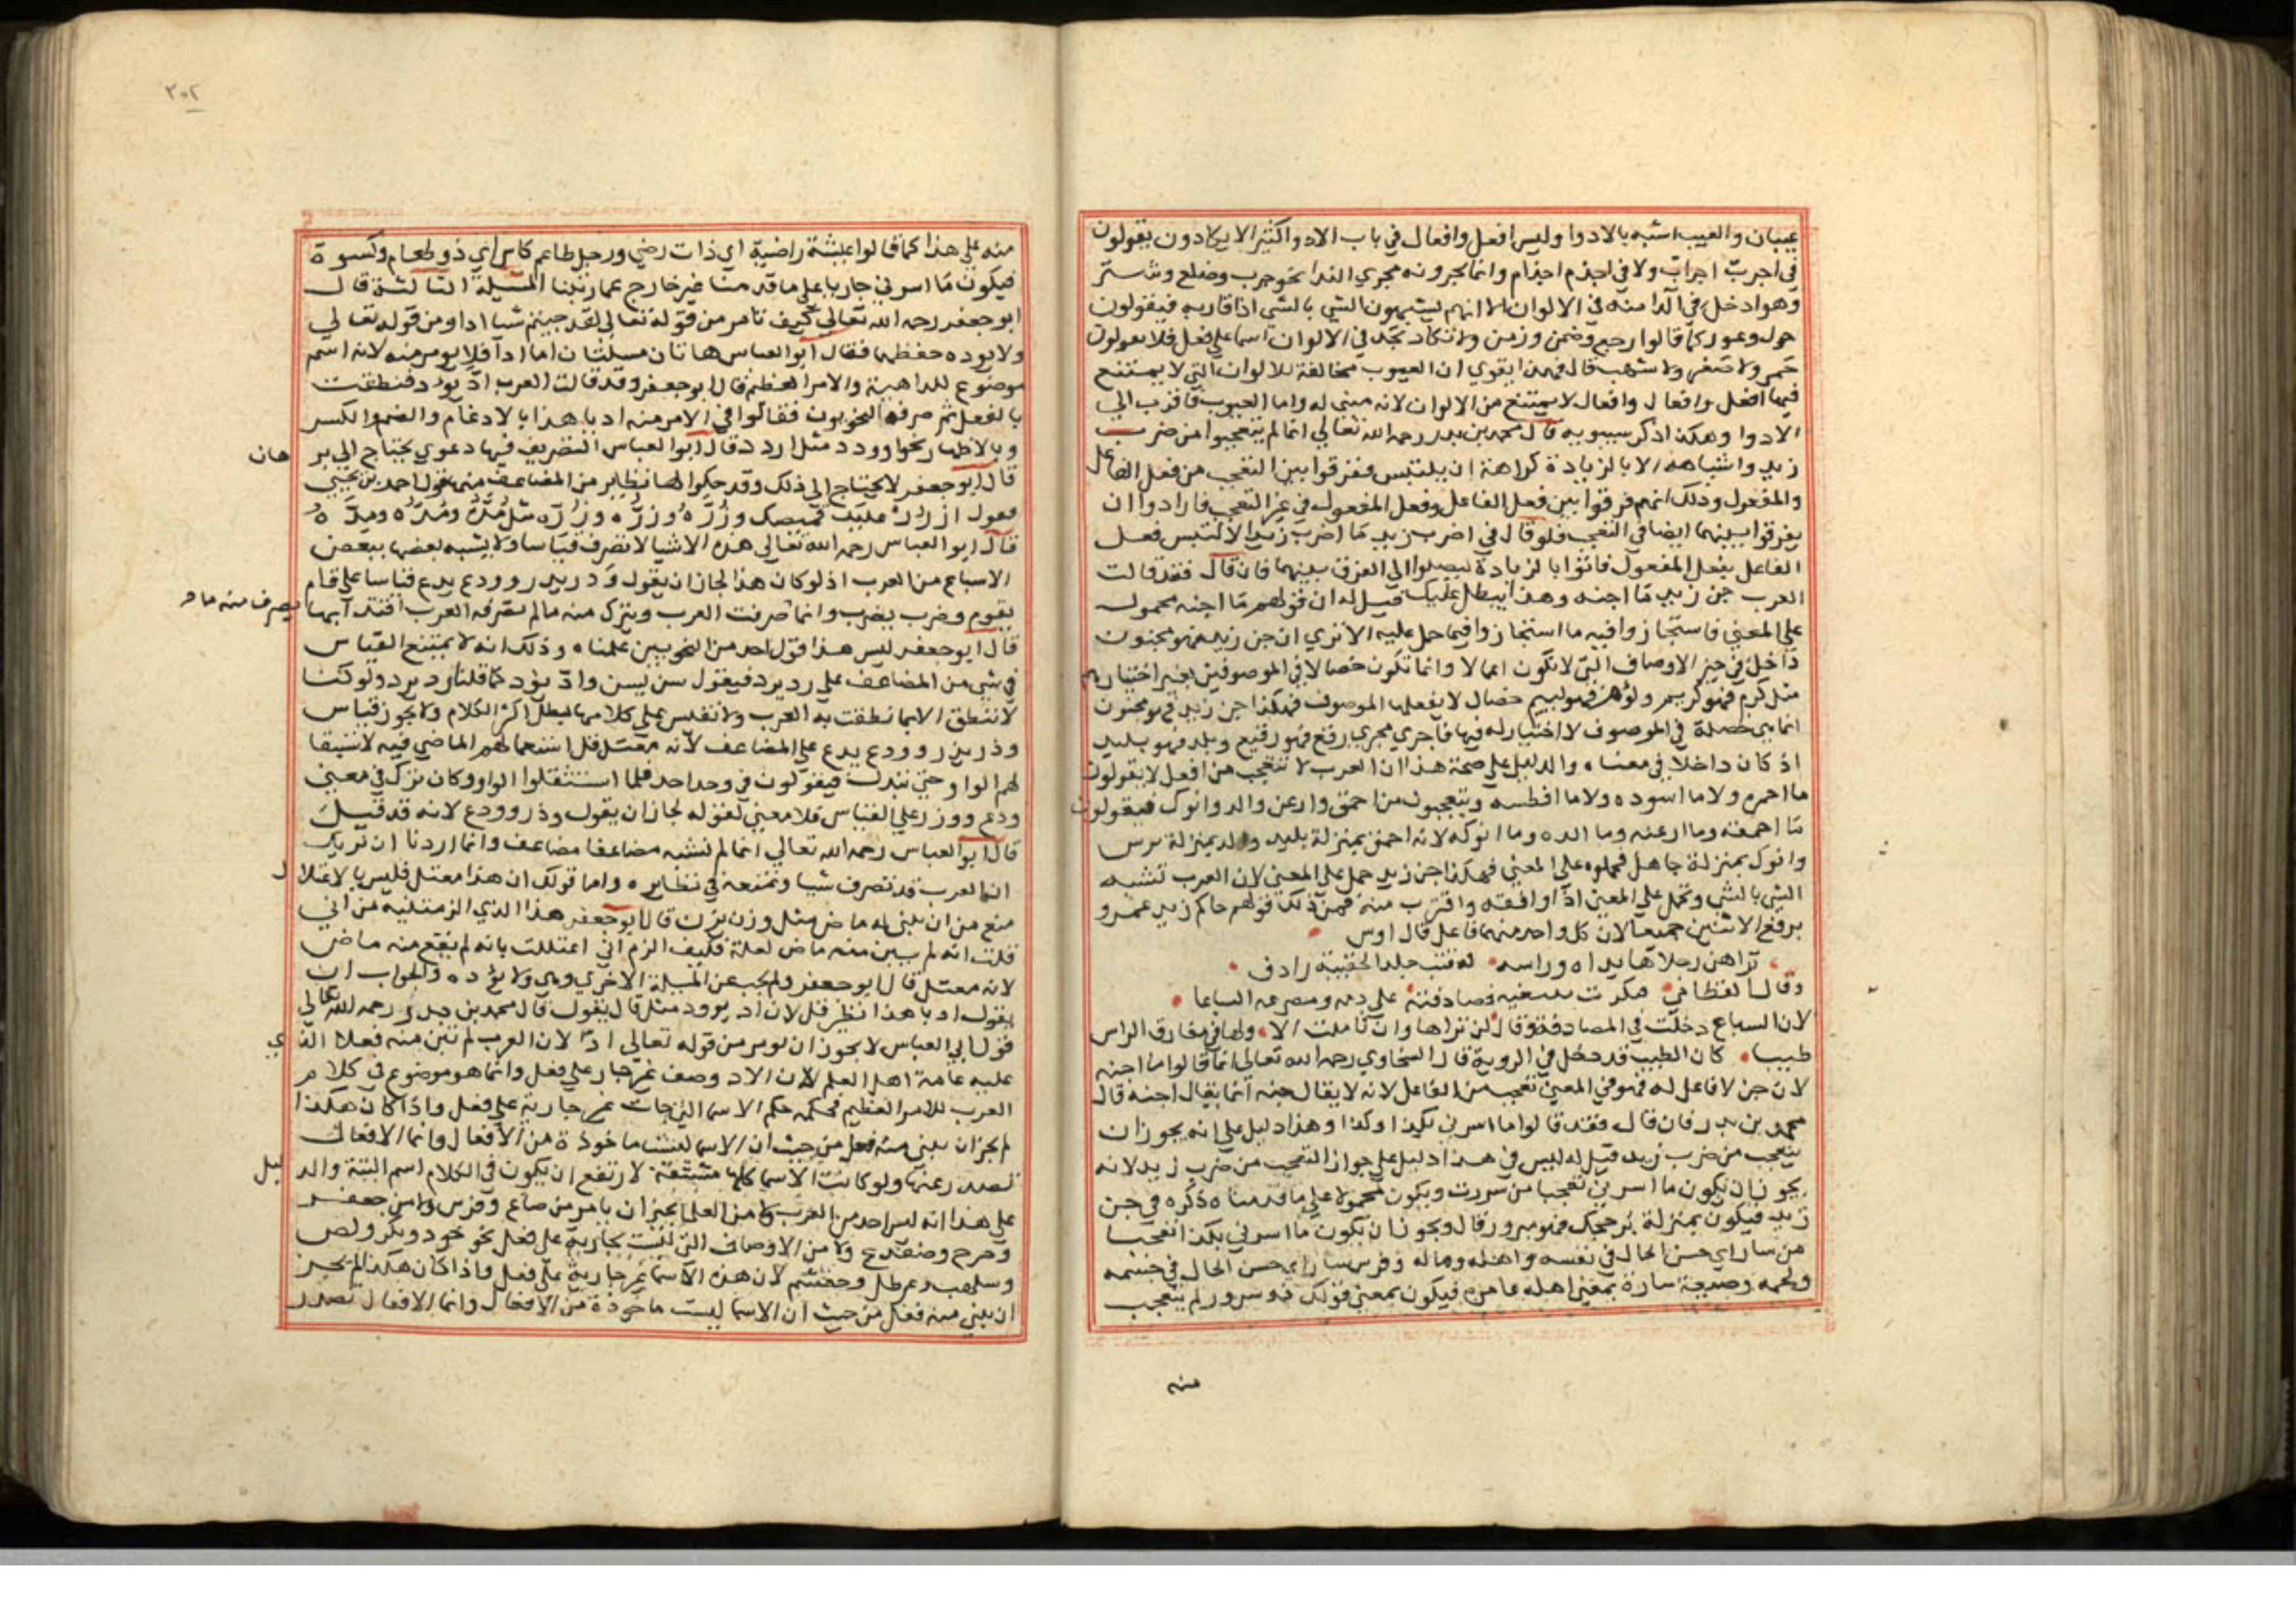 عيبان والعيب اشبه بالادوا وليس افعل وافعال في باب الادوا كثير الا يكادون يقولون
في اجرب اجراب ولا في اجذم اجذام وانما يجرونه مجري الندا نحو جرب وضلع وشتر
وهو ادخل في الدا منه في الالوان الا انهم يشبهون الشي بالشي اذا قاربه فيقولون
حول وعور كما قالوا رجع وضمن وزمن ولا تكاد تجد في الالوان اسما علي فعل فلا يقولون
حمر ولا صفر ولا شهب قال فهذا يقوي ان العيوب مخالفة للالوان التي لا يمتنع
فيها افعل وافعال لا يمتنع من الالوان لانه مبني له واما العيوب فاقرب الي
الادوا وهكذا ذكر سيبويه قال محمد بن بدر رحمه الله تعالي انما لم يتعجبوا من ضرب
زيد واشباهه الا بالزيادة كراهة ان يلتبس ففرقوا بين التعجب من فعل الفاعل
والمفعول وذلك انهم فرقوا بين فعل الفاعل وفعل المفعول في غير التعجب فارادوا ان
يفرقوا بينهما ايضا في التعجب فلو قال في اضرب زيد ما اضرب زيدا لالتبس فعل
الفاعل بفعل المفعول فاتوا بالزيادة ليصلوا الي الفرق بينهما فان قال فقد قالت
العرب جن زيد ما اجنه وهذا يبطل عليك قيل له ان قولهم ما اجنه محمول
علي المعني فاستجازوا فيه ما استجازوا فيما حمل عليه الا تري ان جن زيد فهو مجنون
داخل في حيز الاوصاف التي لا تكون اعمالا وانما تكون خصالا في الموصوفين بغير اختيارهم
مثل كرم فهو كريم ولؤم فهو لييم خصال لا يفعلها الموصوف فهكذا جن زيد فهو مجنون
انما هي خصلة في الموصوف لا اختيار له فيها فاجري مجري رفع فهو رفيع وبلد فهو بليد
اذ كان داخلا في معناه والدليل علي صحة هذا ان العرب لا تتعجب من افعل لا يقولون
ما احمره ولا ما اسوده ولا ما افطسه ويتعجبون من احمق وارعن والد وانوك فيقولون
ما احمقه وما ارعنه وما الده وما انوكه لانه احمق بمنزلة بليد والد بمنزلة مرس
وانوك بمنزلة جاهل فحملوه علي المعني فهكذا جن زيد حمل علي المعني لان العرب تشبه
الشي بالشي وتحمل علي المعني اذا وافقه واقترب منه فمن ذلك قولهم حاكم زيد عمرو
برفع الاثنين جميعا لان كل واحد منهما فاعل قال اوس
تراهن رجلاها يداه وراسه له قتب خلد الحقيبة رادف
وقال القطامي فكرت فصادفته علي دمه ومصرعه السباعا
لان السباع دخلت في المصادفة وقال لن تراها وان تاملت الا ولها في مفارق الراس
طيبا كان الطيب قد دخل في الروية قال السخاوي رحمه الله تعالي انما قالوا ما اجنه
لان جن لا فاعل له فهو في المعني تعجب من الفاعل لانه لا يقال جنه انما يقال اجنه قال
محمد بن بدر فان قال فقد قالوا ما اسرني بكذا وكذا وهذا دليل علي انه يجوز ان
يتعجب من ضرب زيد قيل له ليس في هذا دليل علي جواز التعجب من ضرب زيد لانه
يجوز ان يكون ما اسرني تعجبا من سررت ويكون محمولا علي ما قدمناه ذكره في جن
زيد فيكون بمنزلة بر حجك فهو مبرور قال ويجوز ان يكون ما اسرني بكذا تعجبا
من سار اي حسن الحال في نفسه واهله وماله وفرس سار اي حسن الحال في جسمه
ولحمه وضيعة سارة بمعني اهله عامرة فيكون بمعني قولك ذو سرور لم يتعجب
منه
٣٠٢
منه علي هذا كما قالوا عيشة راضية اي ذات رضي ورجل طاعم كاس اي ذو طعام وكسوة
فيكون ما اسرني جاريا علي ما قدمنا غير خارج عما رتبنا المسيلة الثالثة قال
ابو جعفر رحمه الله تعالي كيف تامر من قوله تعالي لقد جيتم شيا ادا ومن قوله تعالي
ولا يوده حفظهما فقال ابو العباس هاتان مسيلتان اما ادا فلا يومر منه لانه اسم
موضوع للداهية والامر العظيم قال ابو جعفر وقد قالت العرب اد يود فنطقت
بالفعل ثم صرفه النحويون فقالوا في الامر منه اد يا هذا بالادغام والضم والكسر
وبالاظهار نحو اودد مثل اردد قال ابو العباس التصريف فيها دعوي يحتاج الي بر هان
قال ابو جعفر لا يحتاج الي ذلك وقد حكوا لها نظاير من المضاعف منها قول احمد بن يحيي
ازرر عليك قميصك وزره وزره وزره مثل مده ومده ومده
قال ابو العباس رحمه الله تعالي هذه الاشيا لا تصرف قياسا ولا يشبه بعضها ببعض
الا سماع من العرب اذ لو كان هذا لجاز ان يقول وذر يذر وودع يدع قياسا علي قام
يقوم وضرب يضرب وانما صرفت العرب ويترك منه ما لم تصرفه العرب اقتدا بها يصرف منه ما
قال ابو جعفر ليس هذا قول احد من النحويين علمناه وذلك انه لا يمتنع القياس
في شي من المضاعف علي رد يرد فيقول سن يسن واد يؤد كما قلنا رد يرد ولو كنا
لا ننطق الا بما نطقت به العرب ولا نقيس علي كلامها لبطل اكثر الكلام ولا يجوز قياس
وذر يذر وودع يدع علي المضاعف لانه معتل قل استعمالهم الماضي فيه لاستثقا
لهم الواو حتي تبدل فيقولون في وحد احد فلما استثقلوا الواو وكان ترك في معني
ودع ووزر علي القياس فلا معني لقوله لجاز ان يقول وذر وودع لانه قد قيل
قال ابو العباس رحمه الله تعالي انما لم نشبه مضاعفا مضاعف وانما اردنا ان نريك
ان العرب قد تصرف شيا وتمنعه في نظايره واما قولك ان هذا معتل فليس بالاعتلا ل
منع من ان يبني له ماض مثل وزن يزن قال ابو جعفر هذا الذي الزمتنيه من اني
قلت انه لم يبين منه ماض لعلة فكيف الزم اني اعتللت بانه لم يقع منه ماض
لانه معتل قال ابو جعفر ولم يجب عن المسيلة الاخري وهي ولا يؤده والجواب ان
يقول اد يا هذا نظير قل لان اد يوود مثل قال يقول قال محمد بن بدر رحمه الله تعالي
قول ابي العباس لا يجوز ان يومر من قوله تعالي ادا لان العرب لم تبن منه فعلا الذ ي
عليه عامة اهل العلم لان الاد وصف غير جار علي فعل وانما هو موضوع في كلام
العرب للامر العظيم فحكمه حكم الاسما التي جات غير جارية علي فعل واذا كان هكذا
لم يجز ان يبني منه فعل من حيث ان الاسما ليست ماخوذة من الافعال وانما الافعال
تصدر عنها ولو كانت الاسما كلها مشتقة لارتفع ان يكون في الكلام اسم البتة والد ليل
علي هذا انه ليس احد من العرب ولا من العلما يجيز ان يامر من صاع وفرس ولا من جعفر
وضفدع ولا من الاوصاف التي ليست بجارية علي فعل نحو خود وبكر ولص
وسلهب وعرطل وحفشم لان هذه الاسما غير جارية علي فعل واذا كان هكذا لم يجز
ان يبني منه فعل من حيث ان الاسما ليست ماخوذة من الافعال وانما الافعال تصدر